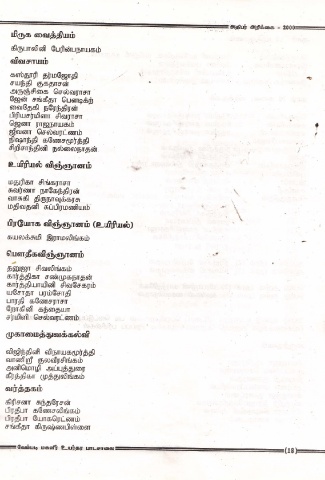 அதிபர் அறிக்கை - 2003
மிருக வைத்தியம்
கிருபாலினி பேரின்பநாயகம்
விவசாயம்
கஸ்தூரி தர்மஜோதி
சயந்தி குகதாசன்
அருஞ்சிகை செல்வராசா
ஜேன் சங்கீதா பெனடிக்ற்
வைதேகி நரேந்திரன்
பிரியசர்மினா சிவராசா
ஜெனா ராஜநாயகம்
ஜீவனா செல்வரட்ணம்
நிஷாந்தி கணேசமூர்த்தி
சிறிசாந்தினி நல்லைநாதன்
உயிரியல் விஞ்ஞானம்
மதுரிகா சிங்கராசா
சுவர்ணா நாகேந்திரன்
வாசுகி திருநாவுக்கரசு
மதிவதனி சுப்பிரமணியம்
பிரயோக விஞ்ஞானம் (உயிரியல்)
கயலக்சுமி இராமலிங்கம்
பௌதீகவிஞ்ஞானம்
தனுஜா சிவலிங்கம்
கார்த்திகா சண்முகநாதன்
கார்த்தியாயினி சிவசேகரம்
யசோதா பரம்சோதி
பாரதி கணேசராசா
ரோகினி கந்தையா
சர்மிளி செல்வரட்ணம்
முகாமைத்துவக்கல்வி
விஜிந்தினி விநாயகமூர்த்தி
வாணிஸ்ரீ குலவீரசிங்கம்
அனிமொழி அப்புத்துரை
கீர்த்திகா முத்துலிங்கம்
வர்த்தகம்
கிரிசனா சுந்தரேசன்
பிரதீபா கணேசலிங்கம்
பிரதீபா யோகரெட்ணம்
சங்கீதா கிருஷ்ணபிள்ளை
வேம்படி மகளிர் உயர்தர பாடசாலை
(18)